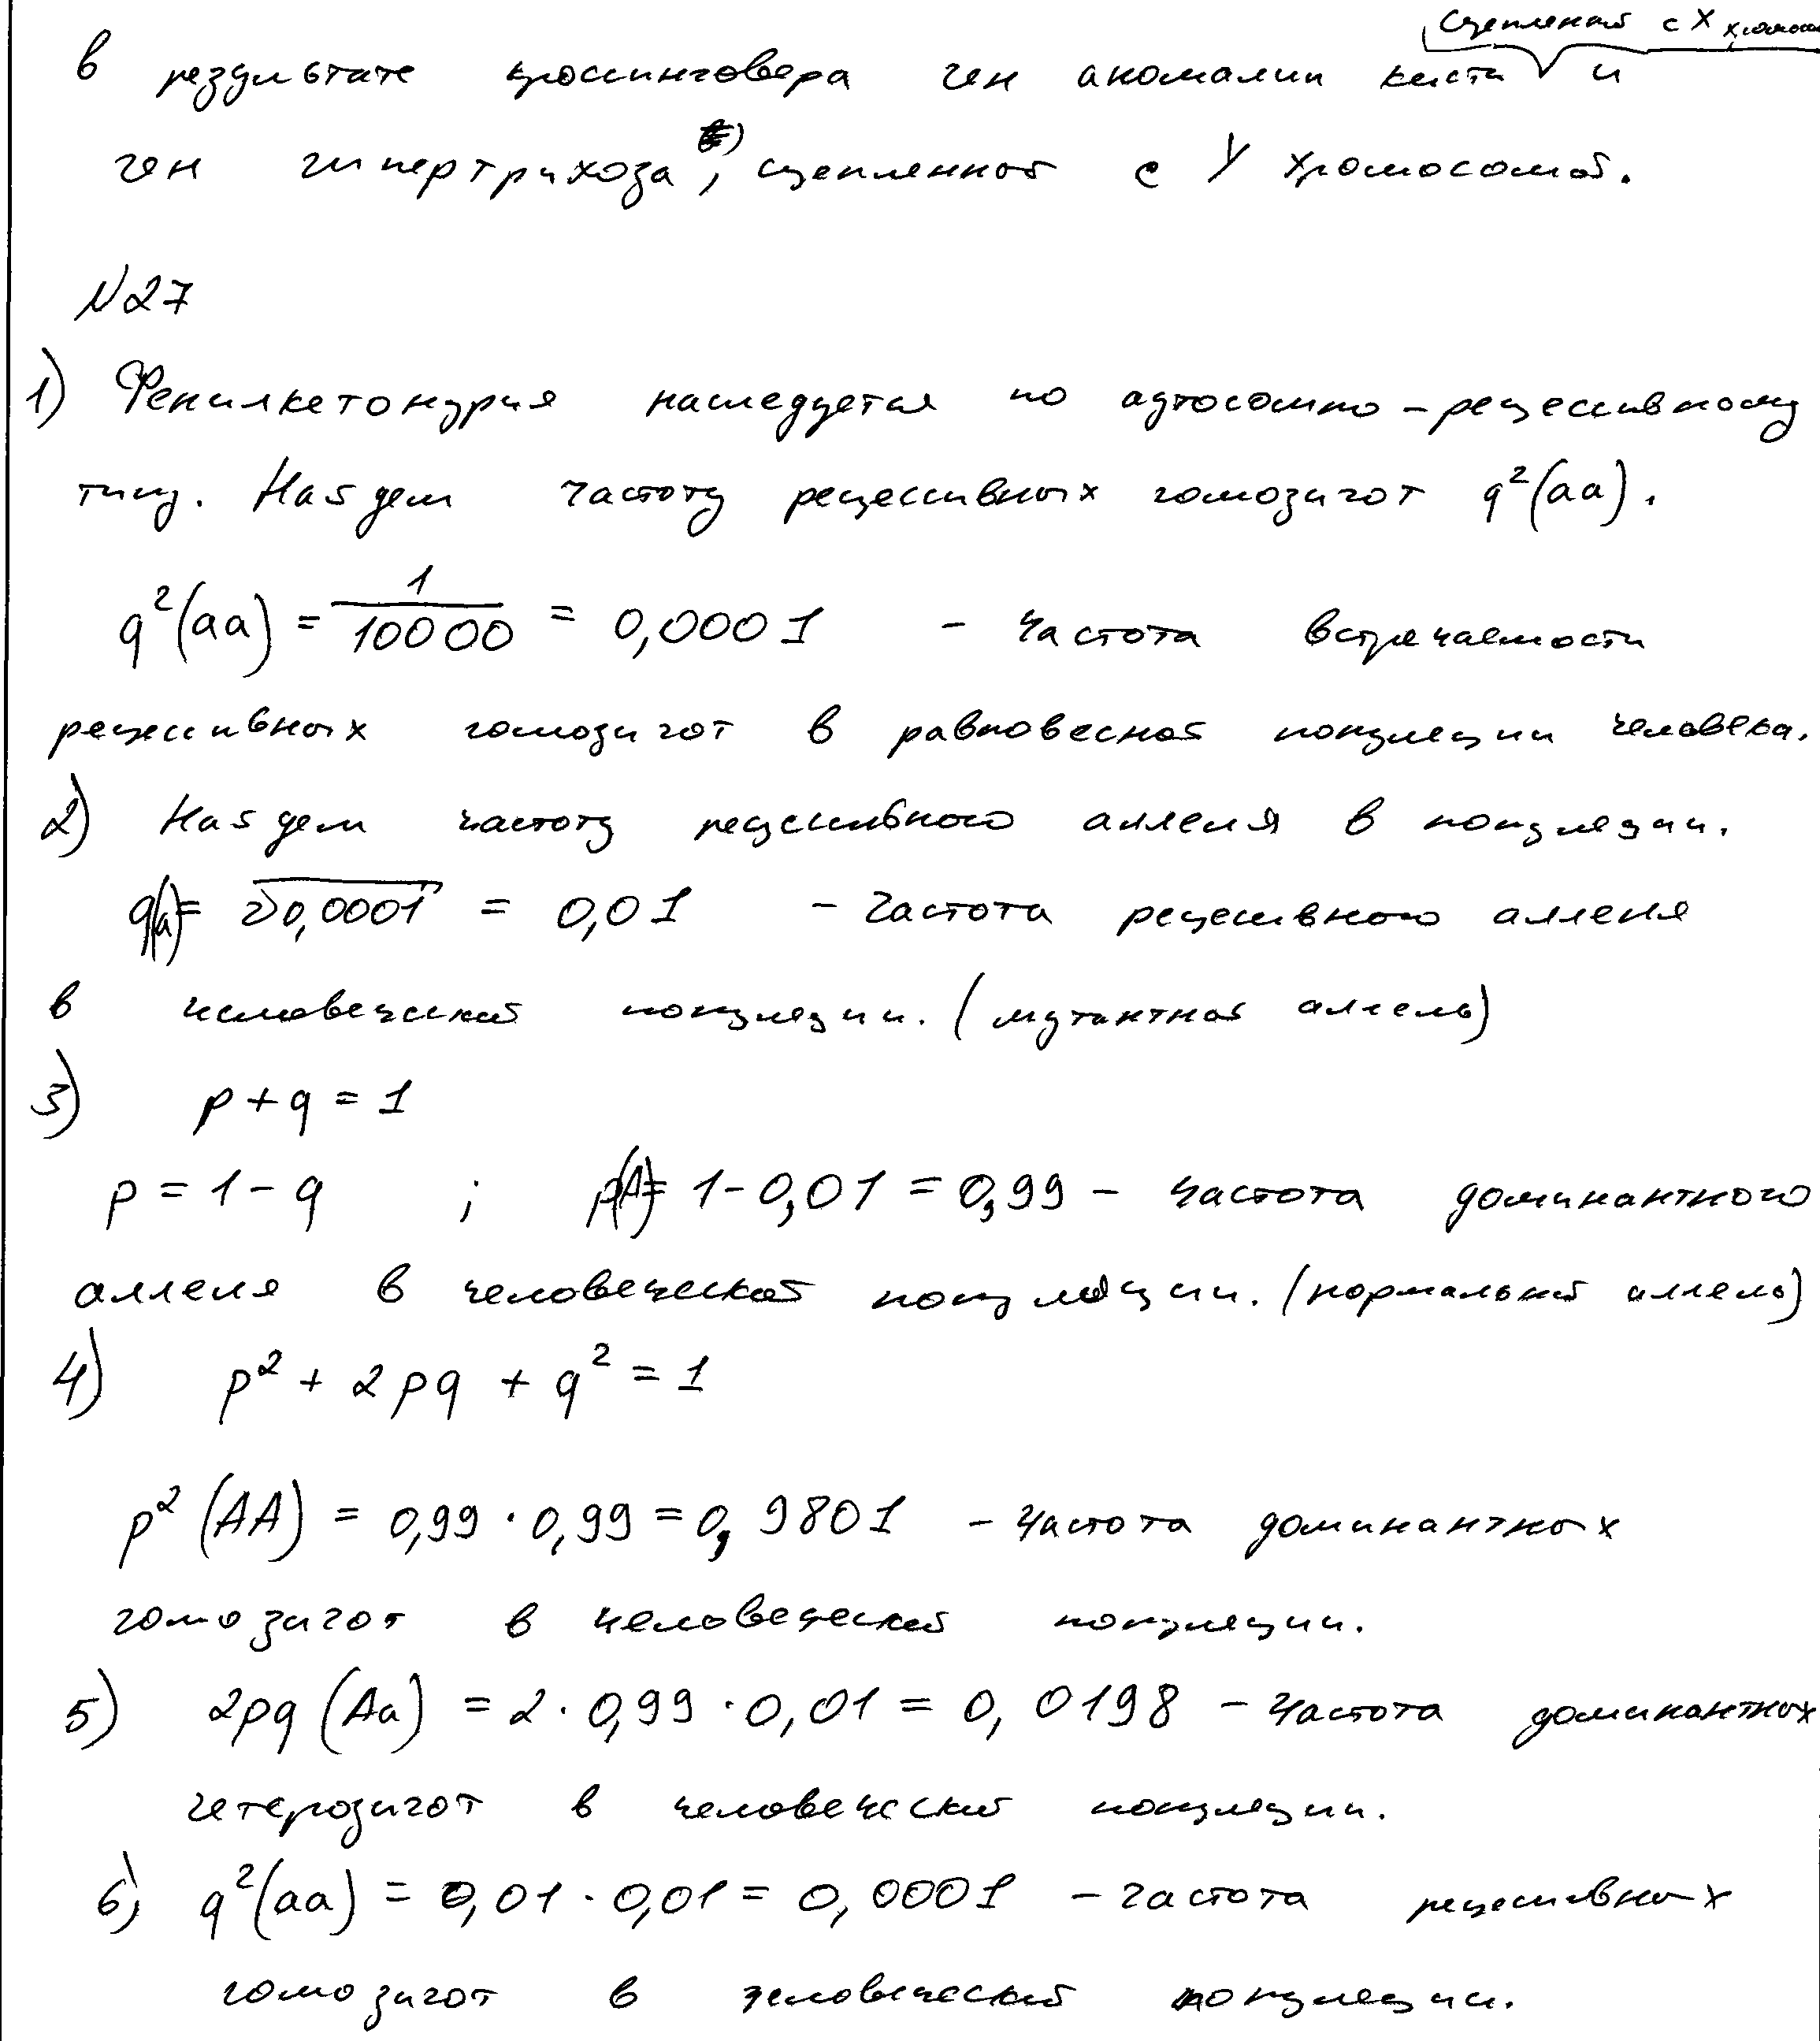 сцепленной с X хромосо
в результате кроссинговера ген аномалии кисти и
ген гипертрихоза, сцепленной с Y хромосомой.
№27
1) Фенилкетонурия наследуется по аутосомно-рецессивному
типу. Найдем частоту рецессивных гомозигот q²(aa).
q²(aa) = 1/10000 = 0,0001 - частота встречаемости
рецессивных гомозигот в равновесной популяции человека.
2) Найдем частоту рецессивного аллеля в популяции.
q(a)= √0,0001 = 0,01 - частота рецессивного аллеля
в человеческой популяции. (мутантной аллель)
3) p+q=1
p=1-q ; p(A)= 1-0,01=0,99 - частота доминантного
аллеля в человеческой популяции. (нормальный аллель)
4) p² + 2pq + q² = 1
p² (AA) = 0,99 · 0,99 = 0,9801 - частота доминантных
гомозигот в человеческой популяции.
5) 2pq (Aa) = 2 · 0,99 · 0,01 = 0,0198 - частота доминантных
гетерозигот в человеческой популяции.
6) q²(aa) = 0,01 · 0,01 = 0,0001 - частота рецессивных
гомозигот в человеческой популяции.